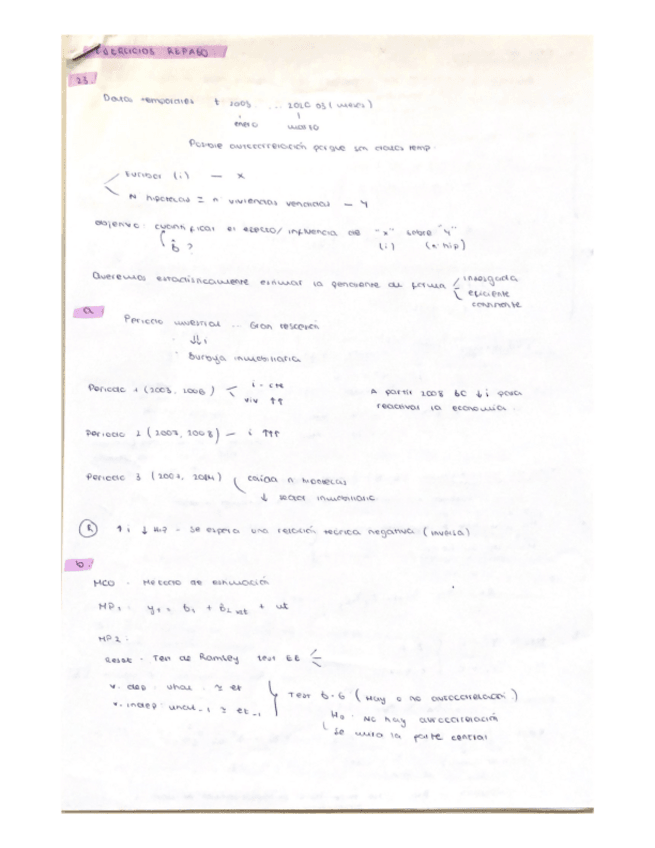 EJERCICIOS REPASO
23.
Datos temporales t 2003 ... 2020 03 (meses)
enero marzo
Posible autocorrelación porque son datos temp.
Euribor (i) — x
N hipotecas = n viviendas vendidas — Y
Objetivo: cuantificar el efecto/ influencia de "x" sobre "Y"
b̂ ? (i) (n hip)
Queremos estadísticamente estimar la pendiente de forma insesgada
eficiente
consistente
a.
Periodo muestral .. Gran recesión
↓↓ i
Burbuja inmobiliaria
Periodo 1 (2003, 2006) i - cte
viv ↑↑
A partir 2008 BC ↓ i para
reactivar la economía.
Periodo 2 (2007, 2008) — i ↑↑↑
Periodo 3 (2007, 2014) caída n hipotecas
↓ sector inmobiliario
R ↑ i ↓ hip - se espera una relación teórica negativa (inversa)
b.
MCO - Método de estimación
MP1: yt = b1 + b2 xt + ut
MP2:
Reset - Test de Ramsey test EE
v. dep: uhat ≃ et
v. indep: uhat-1 ≃ et-1
Test B-G (Hay o no autocorrelación)
H0: No hay autocorrelación
se mira la parte central